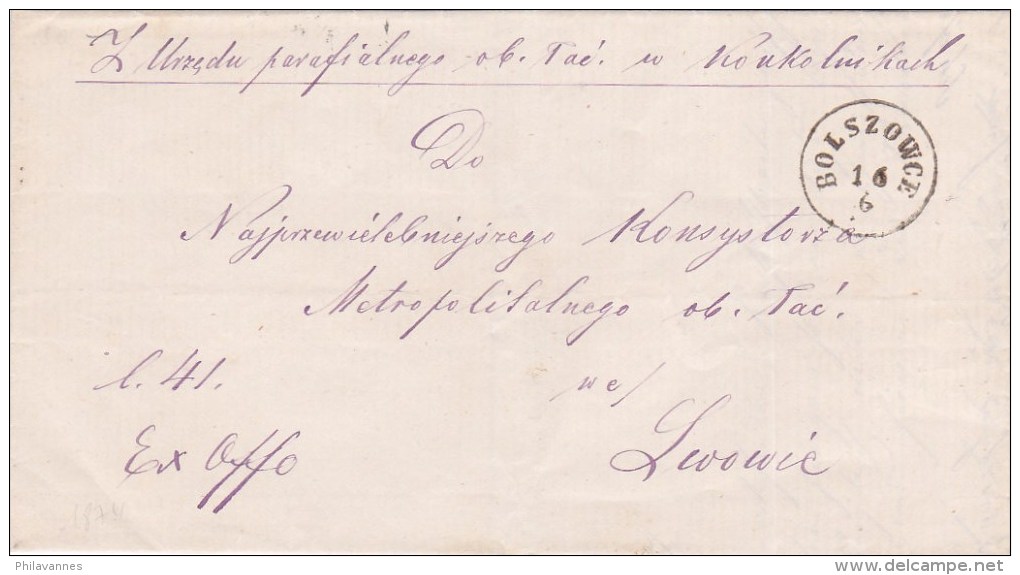 Z Urzędu parafialnego ob. Łać. w Konkolnikach
BOLSZOWCE
16
6
Do
Najprzewielebniejszego Konsystorza
Metropolitalnego ob. Łać.
l. 41.
we/
Ex Offo
Lwowie
1874
Philavannes
delcampe.net